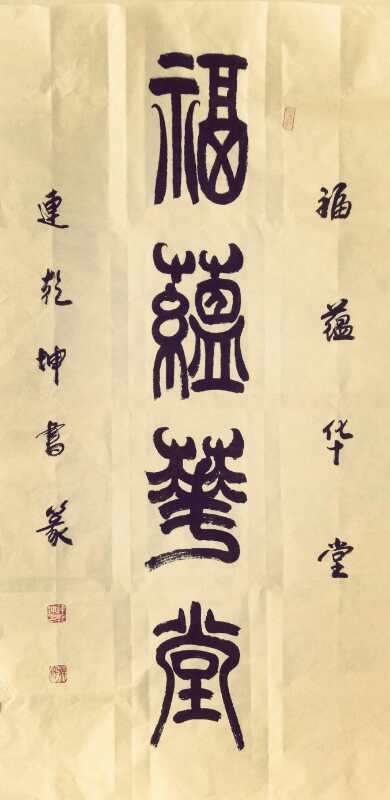 福蕴华堂
福蘊華堂
連乾坤書篆